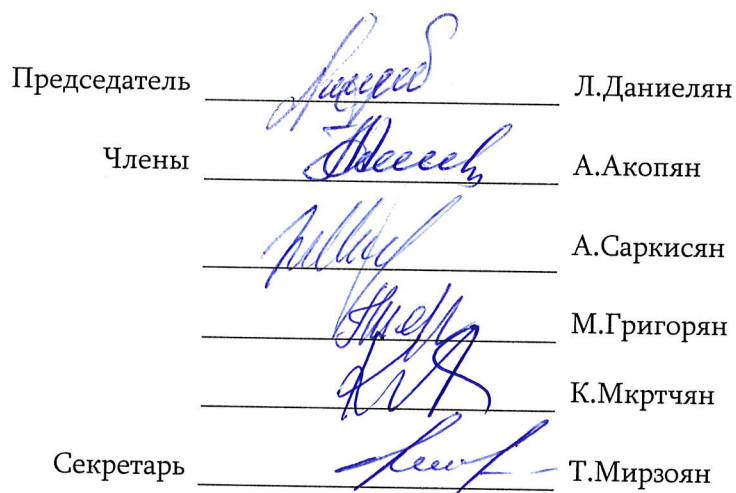 Председатель Л.Даниелян
Члены А.Акопян
А.Саркисян
М.Григорян
К.Мкртчян
Секретарь Т.Мирзоян